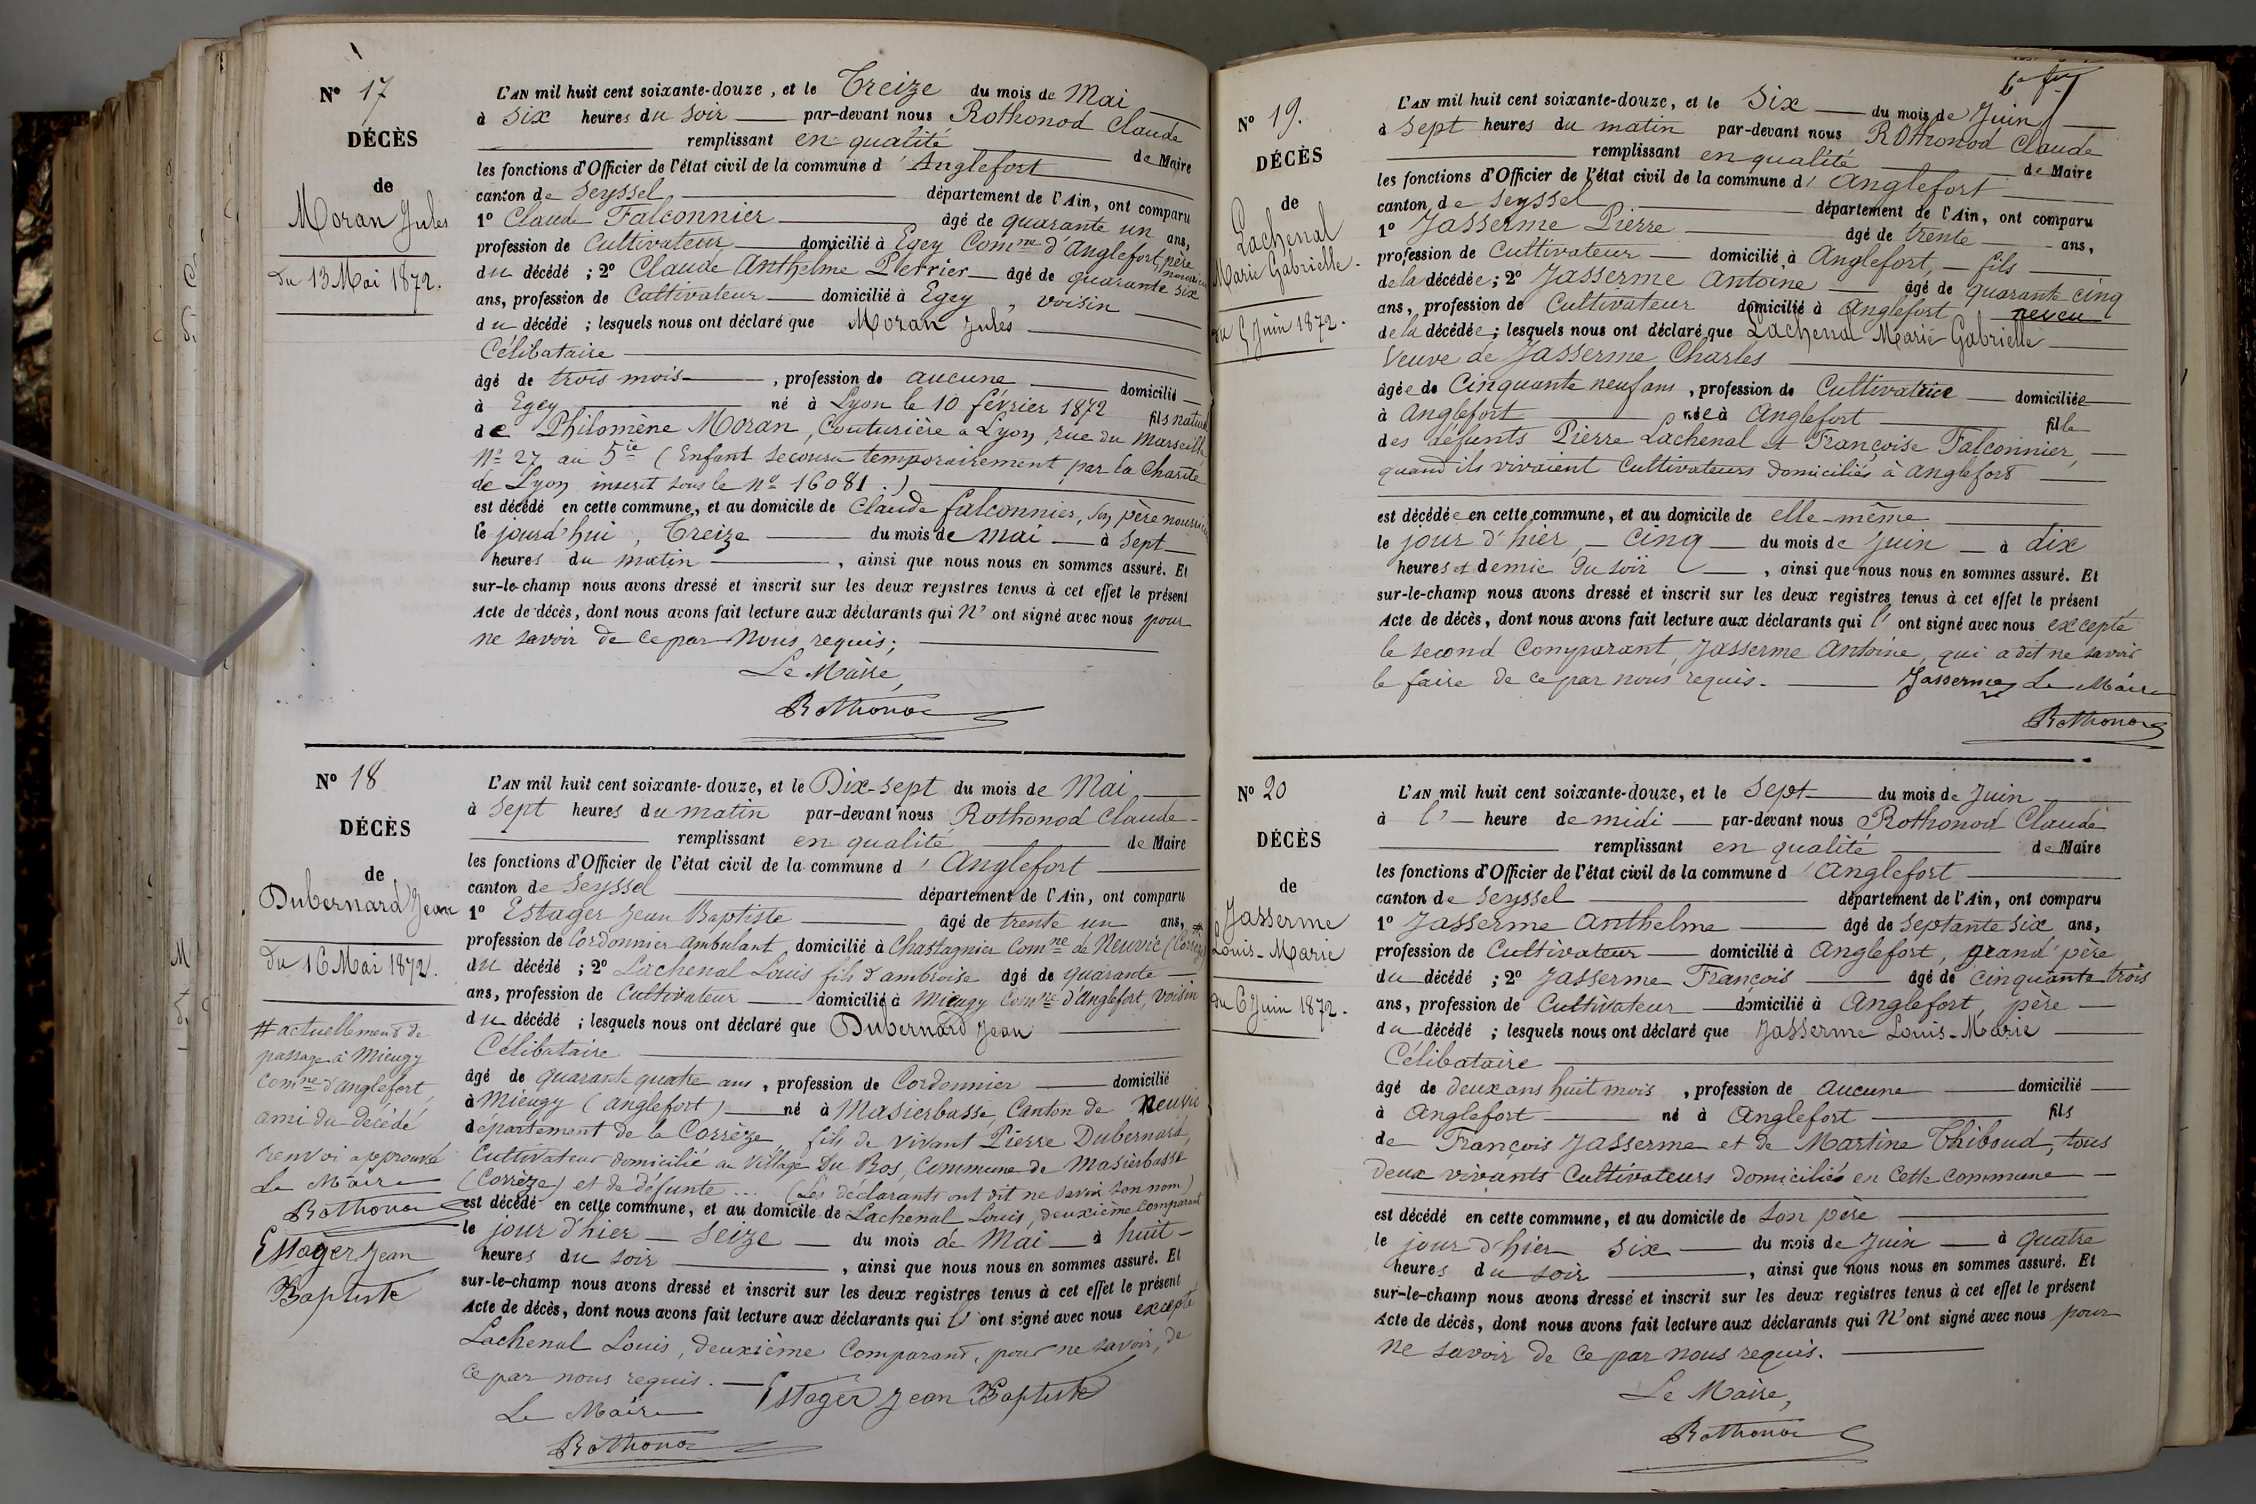 N° 17
DÉCÈS
de
Moran Jules
du 13 Mai 1872.
L'AN mil huit cent soixante-douze, et le Treize du mois de Mai
à six heures du soir par-devant nous Rothonod Claude
remplissant en qualité de Maire
les fonctions d'Officier de l'état civil de la commune d'Anglefort
canton de Seyssel département de l'Ain, ont comparu
1° Claude Falconnier âgé de quarante un ans,
profession de Cultivateur domicilié à Egey Comne d'Anglefort, père nourricier
du décédé ; 2° Claude Anthelme Perrier âgé de quarante six
ans, profession de Cultivateur domicilié à Egey, voisin
du décédé ; lesquels nous ont déclaré que Moran Jules
Célibataire
âgé de trois mois, profession de aucune domicilié
à Egey né à Lyon le 10 février 1872 fils naturel
de Philomène Moran, Couturière à Lyon, rue du Marseille
N° 27 au 5ie (Enfant secouru temporairement par la Charité
de Lyon inscrit sous le N° 16081.)
est décédé en cette commune, et au domicile de Claude falconnier, son père nourricier
le jourd'hui, Treize du mois de Mai à sept
heures du matin, ainsi que nous nous en sommes assuré. Et
sur-le-champ nous avons dressé et inscrit sur les deux registres tenus à cet effet le présent
Acte de décès, dont nous avons fait lecture aux déclarants qui N'ont signé avec nous pour
ne savoir de ce par nous requis;
Le Maire,
Rothonod
N° 18
DÉCÈS
de
Dubernard Jean
du 16 Mai 1872.
# actuellement de
passage à Mieugy
comne d'anglefort,
ami du décédé
renvoi approuvé
Le Maire
Rothonod
Estager Jean
Baptiste
L'AN mil huit cent soixante-douze, et le Dix-sept du mois de Mai
à sept heures du matin par-devant nous Rothonod Claude
remplissant en qualité de Maire
les fonctions d'Officier de l'état civil de la commune d'Anglefort
canton de Seyssel département de l'Ain, ont comparu
1° Estager Jean Baptiste âgé de trente un ans, #
profession de Cordonnier ambulant, domicilié à Chastagnier Comne de Neuvic (Corrèze)
du décédé ; 2° Lachenal Louis fils d'ambroise âgé de quarante
ans, profession de Cultivateur domicilié à Mieugy Comne d'Anglefort, voisin
du décédé ; lesquels nous ont déclaré que Dubernard Jean
Célibataire
âgé de quarante quatre ans, profession de Cordonnier domicilié
à Mieugy (Anglefort) né à Masierbasse, Canton de Neuvic
département de la Corrèze, fils de vivant Pierre Dubernard,
Cultivateur domicilié au Village Du Bos, Commune de Masierbasse
(Corrèze) et de défunte ... (Les déclarants ont dit ne savoir son nom)
est décédé en cette commune, et au domicile de Lachenal Louis, deuxième comparant
le jour d'hier seize du mois de Mai à huit
heures du soir, ainsi que nous nous en sommes assuré. Et
sur-le-champ nous avons dressé et inscrit sur les deux registres tenus à cet effet le présent
Acte de décès, dont nous avons fait lecture aux déclarants qui l'ont signé avec nous excepté
Lachenal Louis, deuxième Comparant, pour ne savoir, de
ce par nous requis.
Estager Jean Baptiste
Le Maire
Rothonod
N° 19.
DÉCÈS
de
Lachenal
Marie Gabrielle.
du 5 Juin 1872.
L'AN mil huit cent soixante-douze, et le Six du mois de Juin
à sept heures du matin par-devant nous Rothonod Claude
remplissant en qualité de Maire
les fonctions d'Officier de l'état civil de la commune d'Anglefort
canton de Seyssel département de l'Ain, ont comparu
1° Jasserme Pierre âgé de trente ans,
profession de Cultivateur domicilié à Anglefort, fils
de la décédée ; 2° Jasserme Antoine âgé de quarante cinq
ans, profession de Cultivateur domicilié à Anglefort neveu
de la décédée ; lesquels nous ont déclaré que Lachenal Marie Gabrielle
Veuve de Jasserme Charles
âgée de Cinquante neuf ans, profession de Cultivatrice domiciliée
à Anglefort née à Anglefort fille
des défunts Pierre Lachenal et Françoise Falconnier,
quand ils vivaient Cultivateurs domiciliés à Anglefort
est décédée en cette commune, et au domicile de elle-même
le jour d'hier, cinq du mois de Juin à dix
heures et demie du soir, ainsi que nous nous en sommes assuré. Et
sur-le-champ nous avons dressé et inscrit sur les deux registres tenus à cet effet le présent
Acte de décès, dont nous avons fait lecture aux déclarants qui l'ont signé avec nous excepté
le second Comparant, Jasserme Antoine, qui a dit ne savoir
le faire de ce par nous requis. Jasserme Le Maire
Rothonod
N° 20
DÉCÈS
de
Jasserme
Louis-Marie
du 6 Juin 1872.
L'AN mil huit cent soixante-douze, et le Sept du mois de Juin
à l' heure de midi par-devant nous Rothonod Claude
remplissant en qualité de Maire
les fonctions d'Officier de l'état civil de la commune d'Anglefort
canton de Seyssel département de l'Ain, ont comparu
1° Jasserme Anthelme âgé de septante six ans,
profession de Cultivateur domicilié à Anglefort, grand'père
du décédé ; 2° Jasserme François âgé de cinquante trois
ans, profession de Cultivateur domicilié à Anglefort, père
du décédé ; lesquels nous ont déclaré que Jasserme Louis-Marie
Célibataire
âgé de deux ans huit mois, profession de aucune domicilié
à Anglefort né à Anglefort fils
de François Jasserme et de Martine Thiboud, tous
deux vivants Cultivateurs domiciliés en cette commune
est décédé en cette commune, et au domicile de son père
le jour d'hier six du mois de Juin à quatre
heures du soir, ainsi que nous nous en sommes assuré. Et
sur-le-champ nous avons dressé et inscrit sur les deux registres tenus à cet effet le présent
Acte de décès, dont nous avons fait lecture aux déclarants qui N'ont signé avec nous pour
ne savoir de ce par nous requis.
Le Maire,
Rothonod